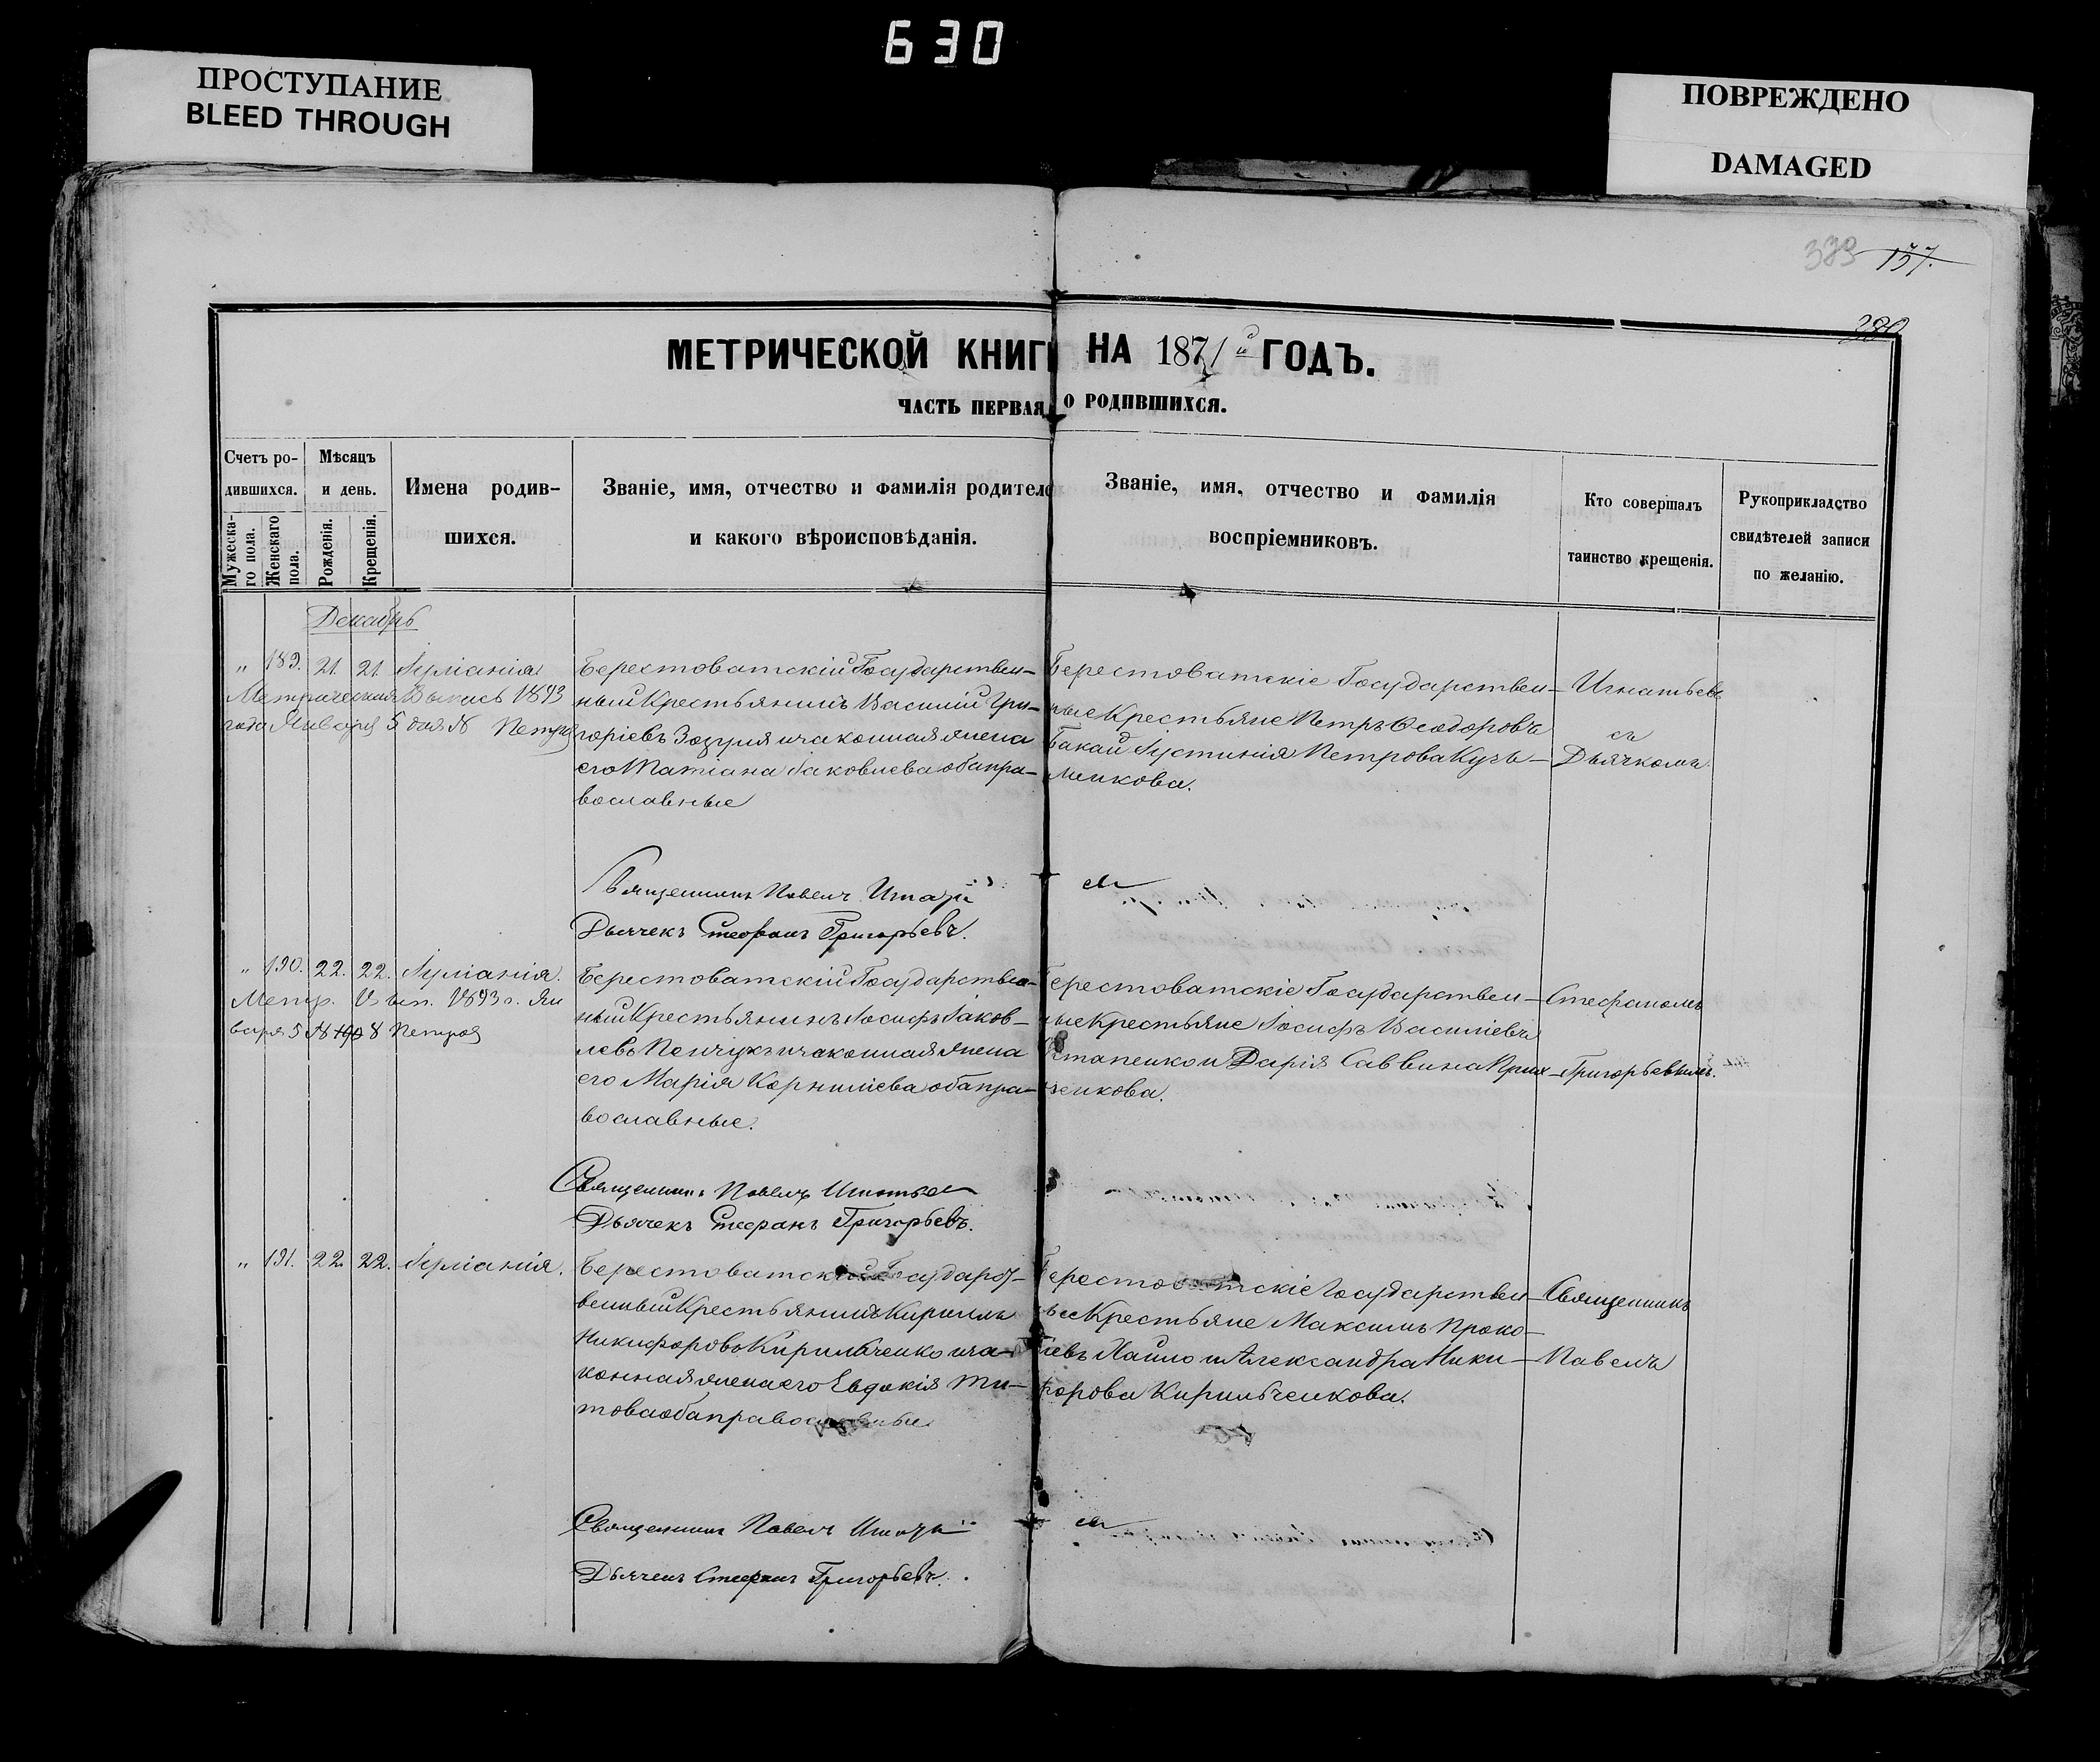 630
ПРОСТУПАНИЕ
BLEED THROUGH
ПОВРЕЖДЕНО
DAMAGED
157.
380
МЕТРИЧЕСКОЙ КНИГИ НА 1871й ГОДЪ.
ЧАСТЬ ПЕРВАЯ, О РОДИВШИХСЯ.
Счетъ ро-
дившихся.
Мужеска-
го пола.
Женскаго
пола.
Мѣсяцъ
и день.
Рожденія.
Крещенія.
Имена родив-
шихся.
Званіе, имя, отчество и фамилія родителе
и какого вѣроисповѣданія.
Званіе, имя, отчество и фамилія
воспріемниковъ.
Кто совершалъ
таинство крещенія.
Рукоприкладство
свидѣтелей записи
по желанію.
Декабрь
„ 189. 21. 21. Іуліанія
Метрическая Выпись 1893
года Января 5 дня №
Берестоватскій Государствен-
ный Крестьянинъ Василій Гри-
горіевъ Зозуля и законная жена
его Татіана Іаковлева оба пра-
вославные
Берестоватскіе Государствен-
ные Крестьяне Петръ Ѳеодоровъ
Бакай Іустинія Петрова Кузь-
менкова.
Игнатьевъ
съ
Дьячкомъ
Священникъ Павелъ
Дьячекъ Стефанъ Григорьевъ.
„ 190. 22. 22. Іуліанія.
Метр. Вып. 1893 г. Ян
варя 5 № 8
Берестоватскій Государствен-
ный Крестьянинъ Іосифъ Іаков-
левъ и законная жена
его Марія Корнилієва оба пра-
вославные.
Берестоватскіе Государствен-
ные Крестьяне Іосифъ Василіевъ
Остапенко и Дарія Саввина
ченкова.
Стефаномъ
Григорьевымъ.
Священникъ Павелъ Игнатьев
Дьячекъ Стефанъ Григорьевъ.
„ 191. 22. 22. Іуліанія.
Берестоватскій Государст-
венный Крестьянинъ Кириллъ
Никифоровъ Кирильченко и за-
конная жена его Евдокія Ти-
това оба православные
Берестоватскіе Государствен-
ные Крестьяне Максимъ Проко-
піевъ Хайло и Александра Ники-
форова Кирильченкова.
Священникъ
Павелъ
Священникъ Павелъ
Дьячекъ Стефанъ Григорьевъ.